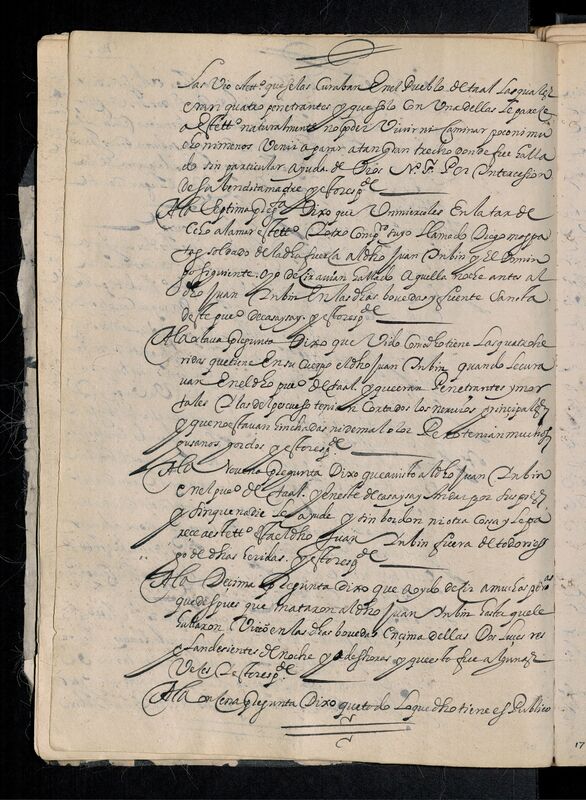 las vio este tt.º que se las curaban En el Pueblo de taal las quales
eran quatro penetrantes y que solo con Una dellas le pareçe
a este tt.º naturalmente no poder Vivir ni Caminar poco ni mu
cho ni menos Venir a parar a tan gran trecho donde fue halla
do sin particular ayuda de Dios N.º S.r Por Intercession
de su benditamadre y esto resp.de
A la septima preg.ta Dixo que Un miercoles En la tarde
Otro Comp.º suyo llamado Diego
soldado de la dha fuerza al dho Juan Inbin y El Domin
go siguiente oyo deçir avian hallado aquella noche antes al
dho Juan Inbin En las dhas bovedas y fuente Santa
deste pu.º de casaysay. y esto resp.de
A la octava pregunta Dixo que Vido Como dho tiene Las quatro he
ridas que tiene En su Cuerpo el dho Juan Inbin quando le cura
van En el dho pu.º de taal. y que eran Penetrantes y mor
tales y las del pescueço tenian Cortados los nervios principales
y que no estavan hinchadas ni de mal olor Pero tenian muchos
gusanos gordos y esto resp.de
A la Novena pregunta Dixo que a visto al dho Juan Inbin
en el pu.º de taal. y en este de casaysay Andar por sus pies
y sin que nadie le ayude y sin bordon ni otra Cossa y le pa
rece a este tt.º esta el dho Juan Inbin fuera de todo ries
go de dhas heridas. y esto resp.de
A la Decima pregunta Dixo que a oydo deçir a muchas per.as
que despues que mataron al dho Juan Inbin hasta que le
hallaron Vieron en las dhas bovedas Ençima dellas Dos luçes res
plandesientes de noche y a deshoras y que esto fue algunas
Veçes y esto resp.de
A la onçena pregunta Dixo que todo lo que dho tiene es Publico